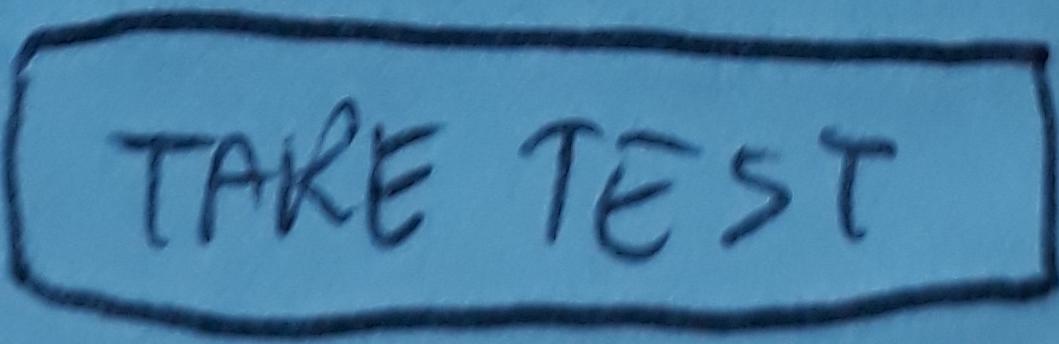 TAKE TEST